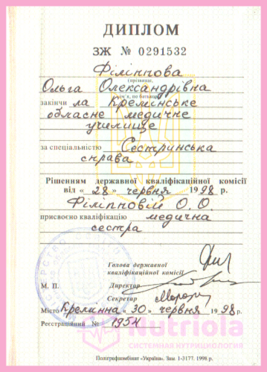 ДИПЛОМ
ЗЖ № 0291532
Філіппова
(прізвище,
Ольга Олександрівна
ім'я, по батькові)
закінчи ла Кремінське
обласне медичне
училище
за спеціальністю Сестринська
справа
Рішенням державної кваліфікаційної комісії
від « 28 » червня 1998 р.
Філіпповій О. О
присвоєно кваліфікацію медична
сестра
Голова державної
кваліфікаційної комісії
М. П. Директор
Секретар
Місто Кремінна « 30 » червня 1998 р.
Реєстраційний № 1954
Nutriola
СИСТЕМНАЯ НУТРИЦИОЛОГИЯ
Поліграфкомбінат «Україна». Зам. 1-3177. 1998 р.